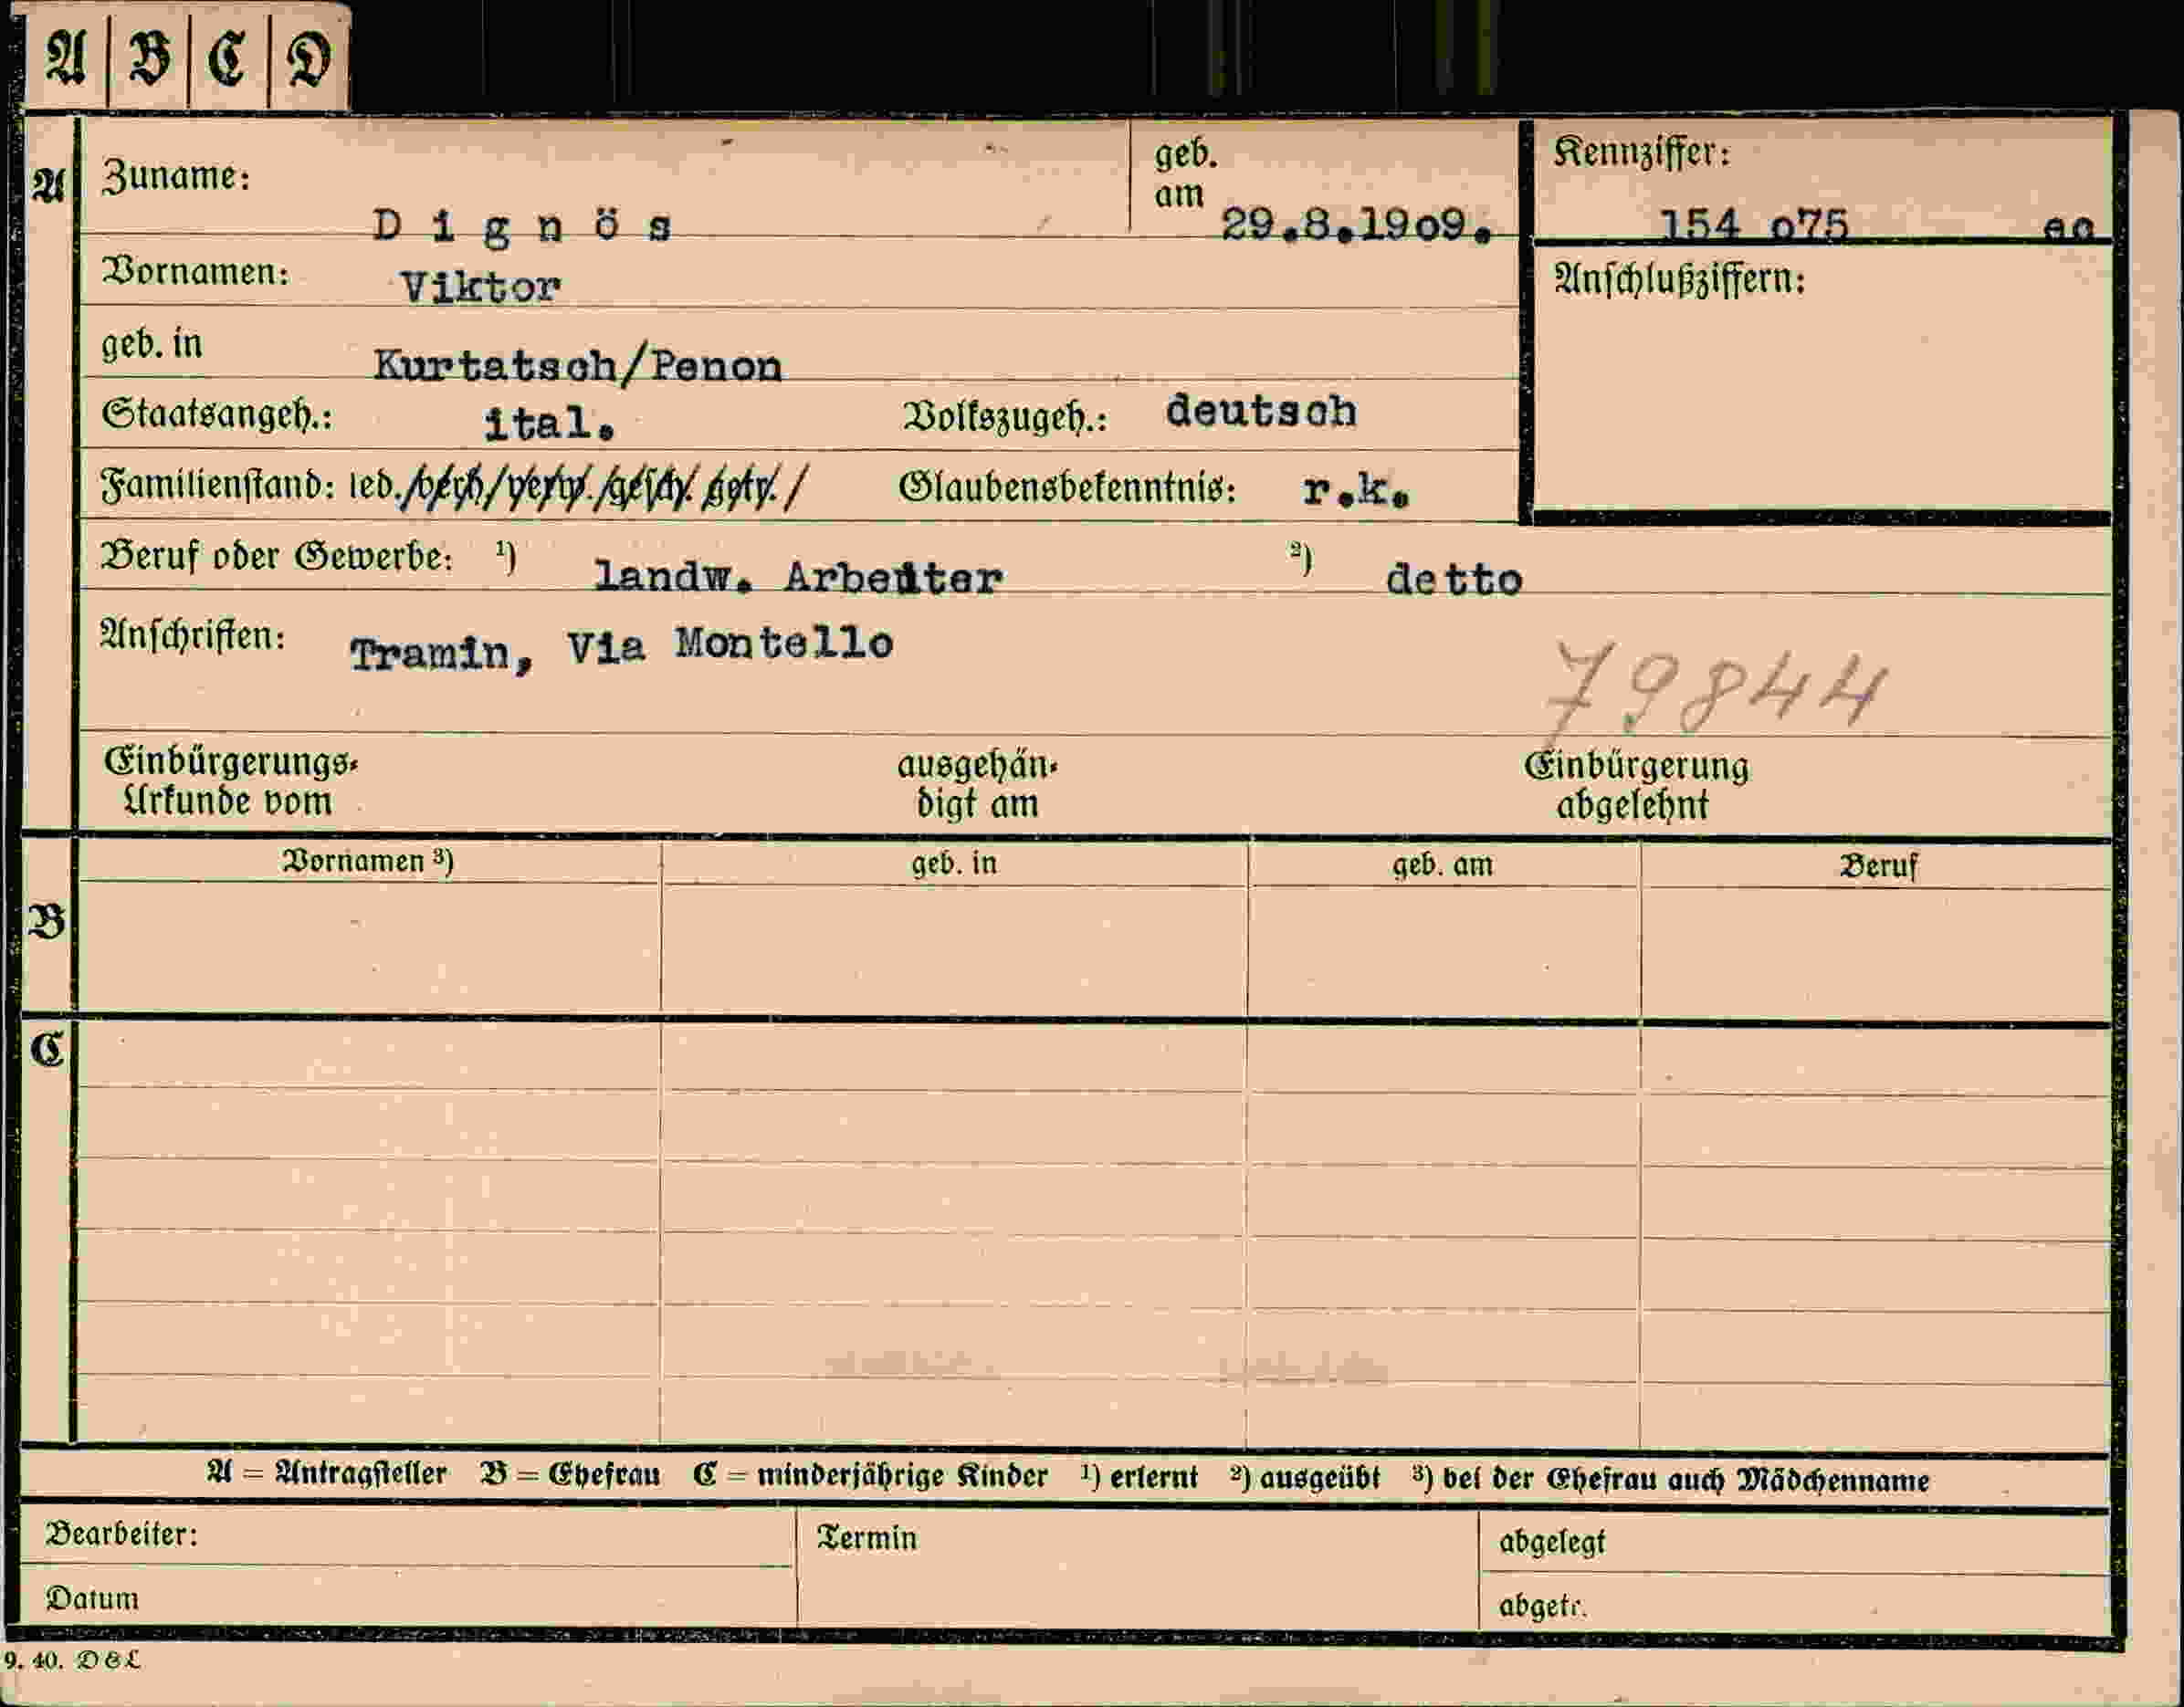 A B C D
A Zuname: Dignös geb. am 29.8.19o9. Kennziffer: 154 o75
Vornamen: Viktor Anschlußziffern:
geb. in Kurtatsch/Penon
Staatsangeh.: ital. Volkszugeh.: deutsch
Familienstand: led./verh/verw./gesch./getr./ Glaubensbekenntnis: r.k.
Beruf oder Gewerbe: ¹) landw. Arbeiter ²) detto
Anschriften: Tramin, Via Montello
79844
Einbürgerungs- ausgehän- Einbürgerung
Urkunde vom digt am abgelehnt
Vornamen ³) geb. in geb. am Beruf
B
C
A = Antragsteller B = Ehefrau C = minderjährige Kinder ¹) erlernt ²) ausgeübt ³) bei der Ehefrau auch Mädchenname
Bearbeiter: Termin abgelegt
Datum abgetr.
9. 40. D & L